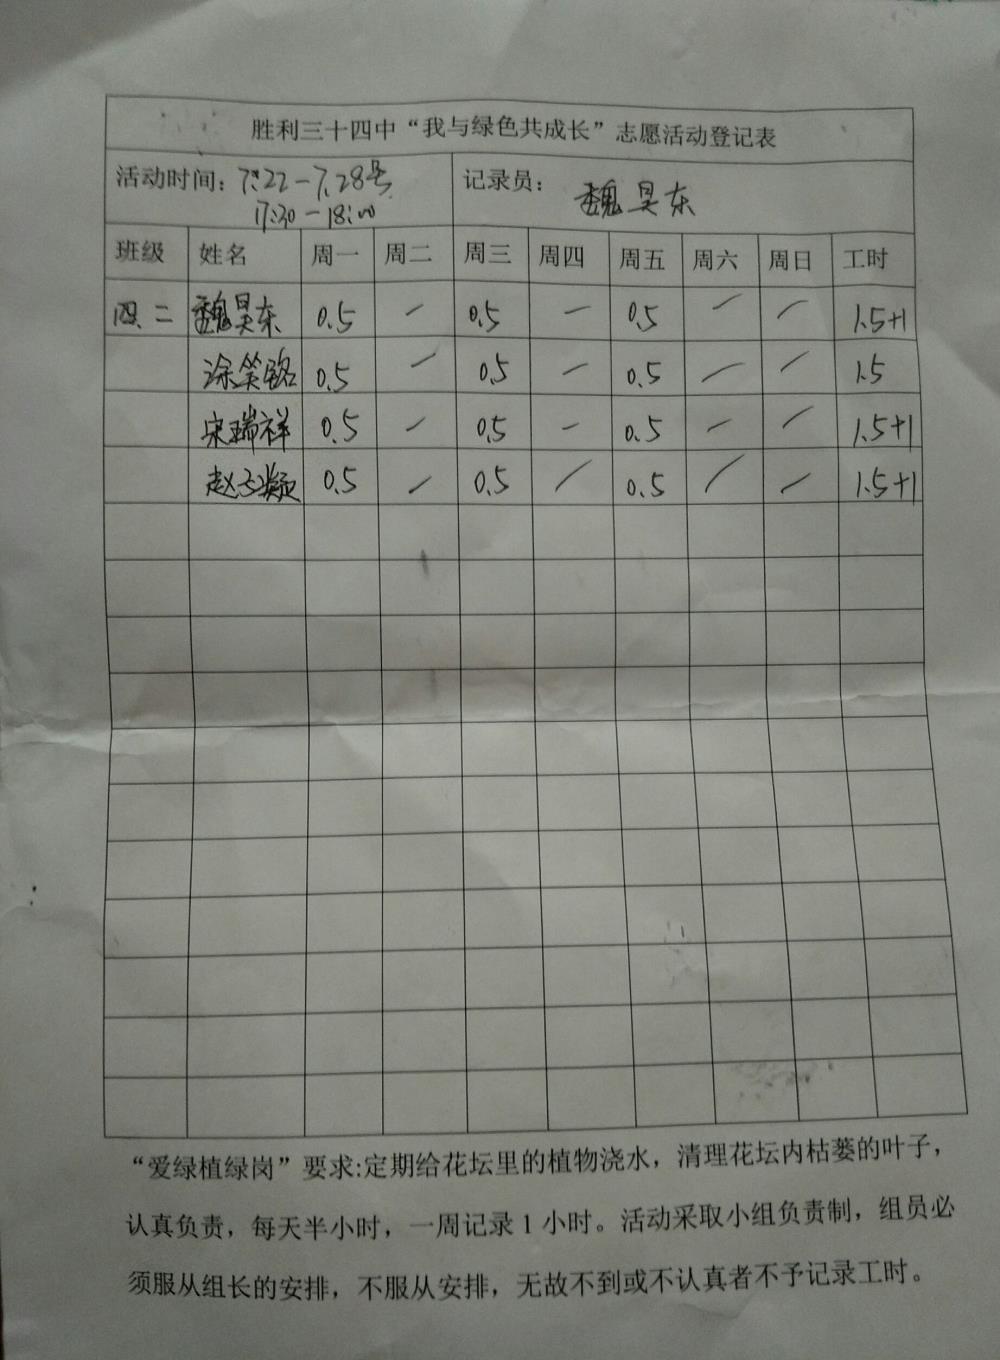 胜利三十四中“我与绿色共成长”志愿活动登记表
活动时间：7.22-7.28号 记录员： 魏昊东
17:30-18:00
班级 姓名 周一 周二 周三 周四 周五 周六 周日 工时
四、二 魏昊东 0.5 — 0.5 — 0.5 — — 1.5+1
涂笑铭 0.5 — 0.5 — 0.5 — — 1.5
宋瑞祥 0.5 — 0.5 — 0.5 — — 1.5+1
赵子凝 0.5 — 0.5 — 0.5 — — 1.5+1
“爱绿植绿岗”要求:定期给花坛里的植物浇水，清理花坛内枯萎的叶子，
认真负责，每天半小时，一周记录1小时。活动采取小组负责制，组员必
须服从组长的安排，不服从安排，无故不到或不认真者不予记录工时。